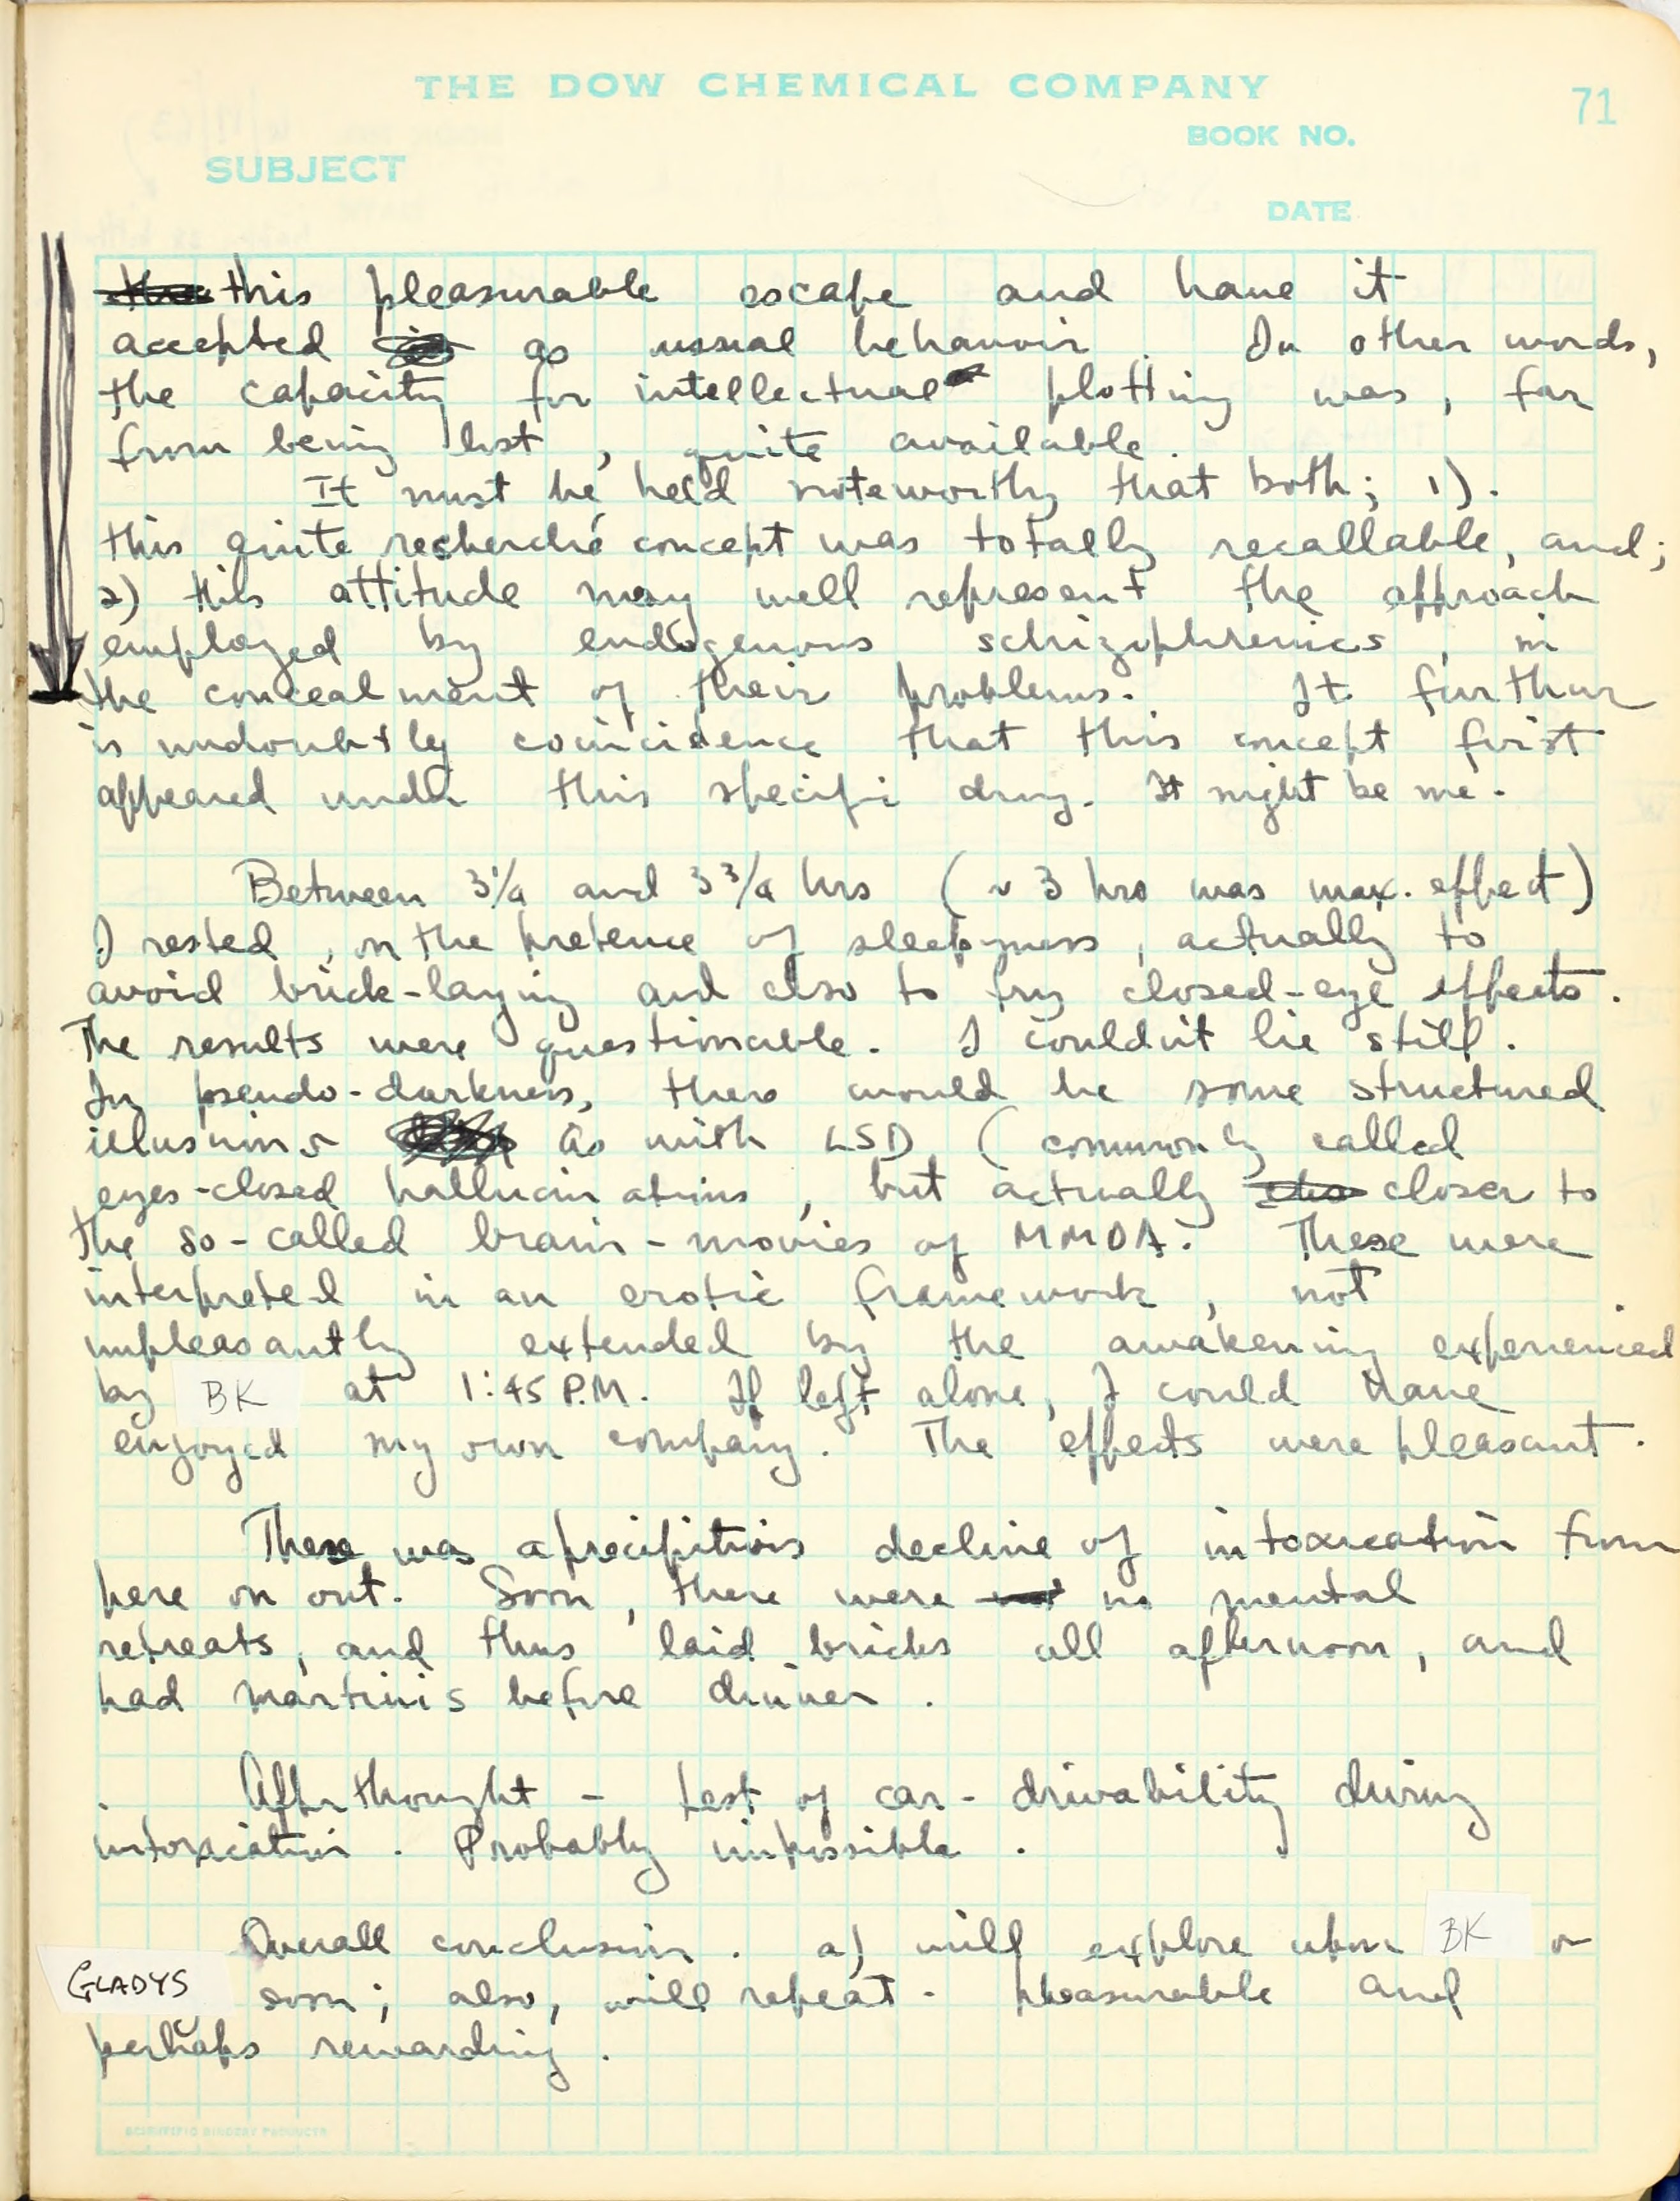 THE DOW CHEMICAL COMPANY
71
BOOK NO.
SUBJECT
DATE
this pleasurable escape and have it
accepted as usual behavoir. In other words,
the capacity for intellectual plotting was, far
from being lost, quite available.
It must be held noteworthy that both; 1).
this quite recherché concept was totally recallable, and;
2) this attitude may well represent the approach
employed by endogenous schizophrenics, in
the concealment of their problems. It further
is undoubtly coincidence that this concept first
appeared under this specific drug. It might be me.
Between 3 1/4 and 3 3/4 hrs (~ 3 hrs was max. effect)
I rested, on the pretence of sleepyness, actually to
avoid brick-laying and also to try closed-eye effects.
The results were questionable. I couldn't lie still.
In pseudo-darkness, there would be some structured
illusions as with LSD (commonly called
eyes-closed hallucinations, but actually closer to
the so-called brain-movies of MMDA. These were
interpreted in an erotic framework, not
unpleasantly extended by the awakening experienced
by BK at 1:45 P.M. If left alone, I could have
enjoyed my own company. The effects were pleasant.
There was a precipitious decline of intoxication from
here on out. Soon, there were no mental
retreats, and thus laid bricks all afternoon, and
had martinis before dinner.
Afterthought - test of car-drivability during
intoxication. Probably impossible.
Overall conclusion. a) will explore upon BK or
GLADYS soon; also, will repeat. pleasurable and
perhaps rewarding.
SCIENTIFIC BINDERY PRODUCTS